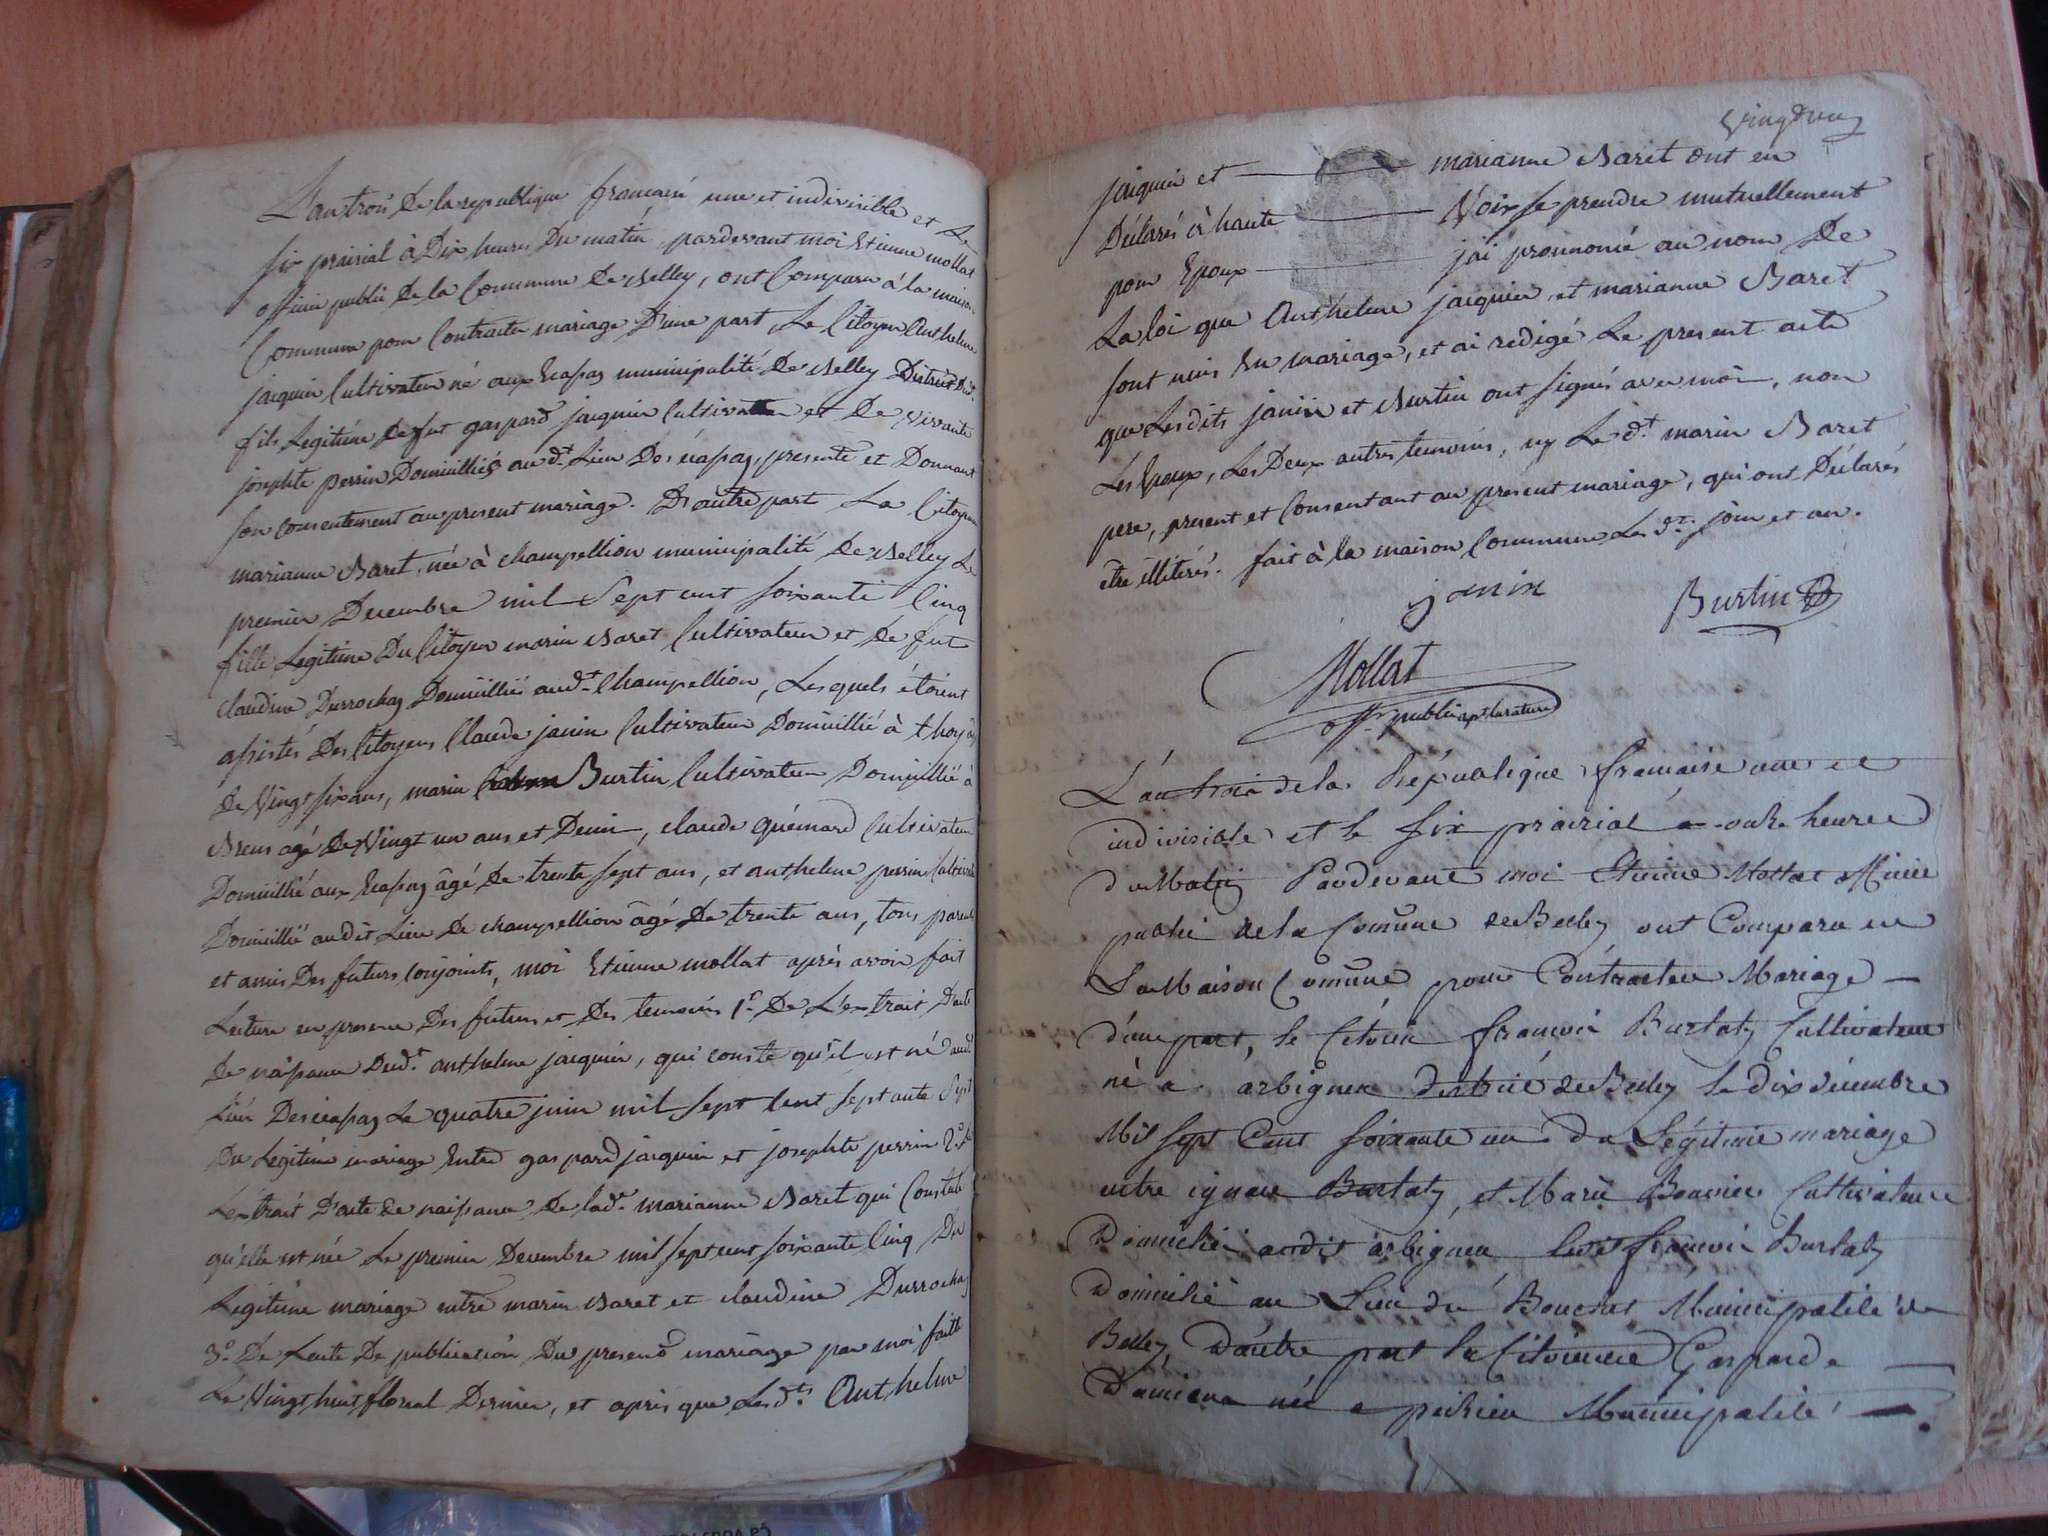 L'an trois de la republique francaise une et indivisible et le
six prairial à dix heures du matin, pardevant moi Etienne mollat
officier public de la Commune de Belley, ont Comparu à la maison
Commune pour Contracter mariage d'une part, Le Citoyen Anthelme
jacquin Cultivateur né aux Ecassaz municipalité de Belley District dud.
fils Legitime de fut gaspard jacquin Cultivateur et de vivante
josephte perrin Domiciliés au dt. Lieu des écassaz, presente et Donnant
son Consentement au present mariage. D'autre part La Citoyenne
marianne Baret, née à champellion municipalité de Belley Le
premier Decembre mil Sept cent soixante Cinq
fille Legitime du Citoyen marin Baret Cultivateur et de fut
claudine Durrochaz Domiciliés aud.t Champellion, Lesquels étoient
assistés des Citoyens Claude janin Cultivateur Domicillié à
de Vingt six ans, marin Burtin Cultivateur Domicillié à
Brens agé de Vingt un ans et Demi, claude quémard Cultivateur
Domicillié aux Ecassaz âgé de trente sept ans, et anthelme perrin Cultivateur
Domicillié audit Lieu de champellion âgé de trente ans, tous parents
et amis des futurs conjoints, moi Etienne mollat après avoir fait
Lecture en presence des futurs et des temoins 1.° de L'extrait d'acte
de naissance dud.t anthelme jacquin, qui conste qu'il est né aud.t
Lieu des écassaz Le quatre juin mil sept Cent septante Sept
du Legitime mariage Entre gaspard jacquin et josephte perrin 2.° de
L'extrait d'acte de naissance de lad.e marianne Baret qui Constate
qu'elle est née Le premier Decembre mil sept cent soixante Cinq du
Legitime mariage entre marin Baret et claudine Durrochaz
3.° de L'acte de publication du present mariage par moi faitte
Le Vingt huit floreal Dernier, et après que Lesd.ts Anthelme
jacquin et marianne Baret ont eu
Déclarés à haute Voix se prendre mutuellement
pour Epoux j'ai prononcé au nom de
La loi que Anthelme jacquin et marianne Baret
sont unis En mariage, et ai redigé Le present acte
que Lesdits janin et Burtin ont signés avec moi, non
Les Epoux, Les Deux autres temoins, ny Le d.t marin Baret
pere, present et Consentant au present mariage, qui ont Déclarés
etre illitérés. fait à la maison Commune Les d.ts jour et an.
janin Burtin
Mollat
off. public
L'an trois de la République francaise une et
indivisible et le six prairial a onze heures
du Matin Pardevant moi Etienne Mollat officier
public de la Comune de Belley ont Comparu en
La Maison Comune pour Contracter Mariage
d'une part, le Citoien francois Burlaty Cultivateur
né a arbignieu district de Belley le dix décembre
Mil sept Cent soixante un du Légitime mariage
entre ignace Burlaty, et Marie Bouvier Cultivateurs
Domiciliés audit arbignieu ledit francois Burlaty
Domicilié au Lieu du Bouchet Municipalité de
Belley D'autre part la Citoienne Gasparde
Damiens née a Municipalité